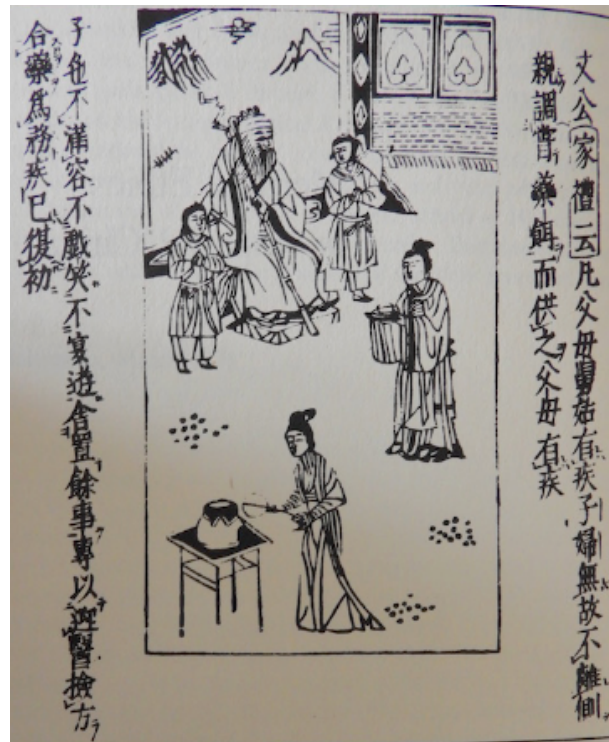 文公家禮云凡父母舅姑有疾子婦無故不離側
親調嘗藥餌而供之父母有疾
子色不滿容不戲笑不宴遊舍置餘事專以迎醫檢方
合藥爲務疾已復初